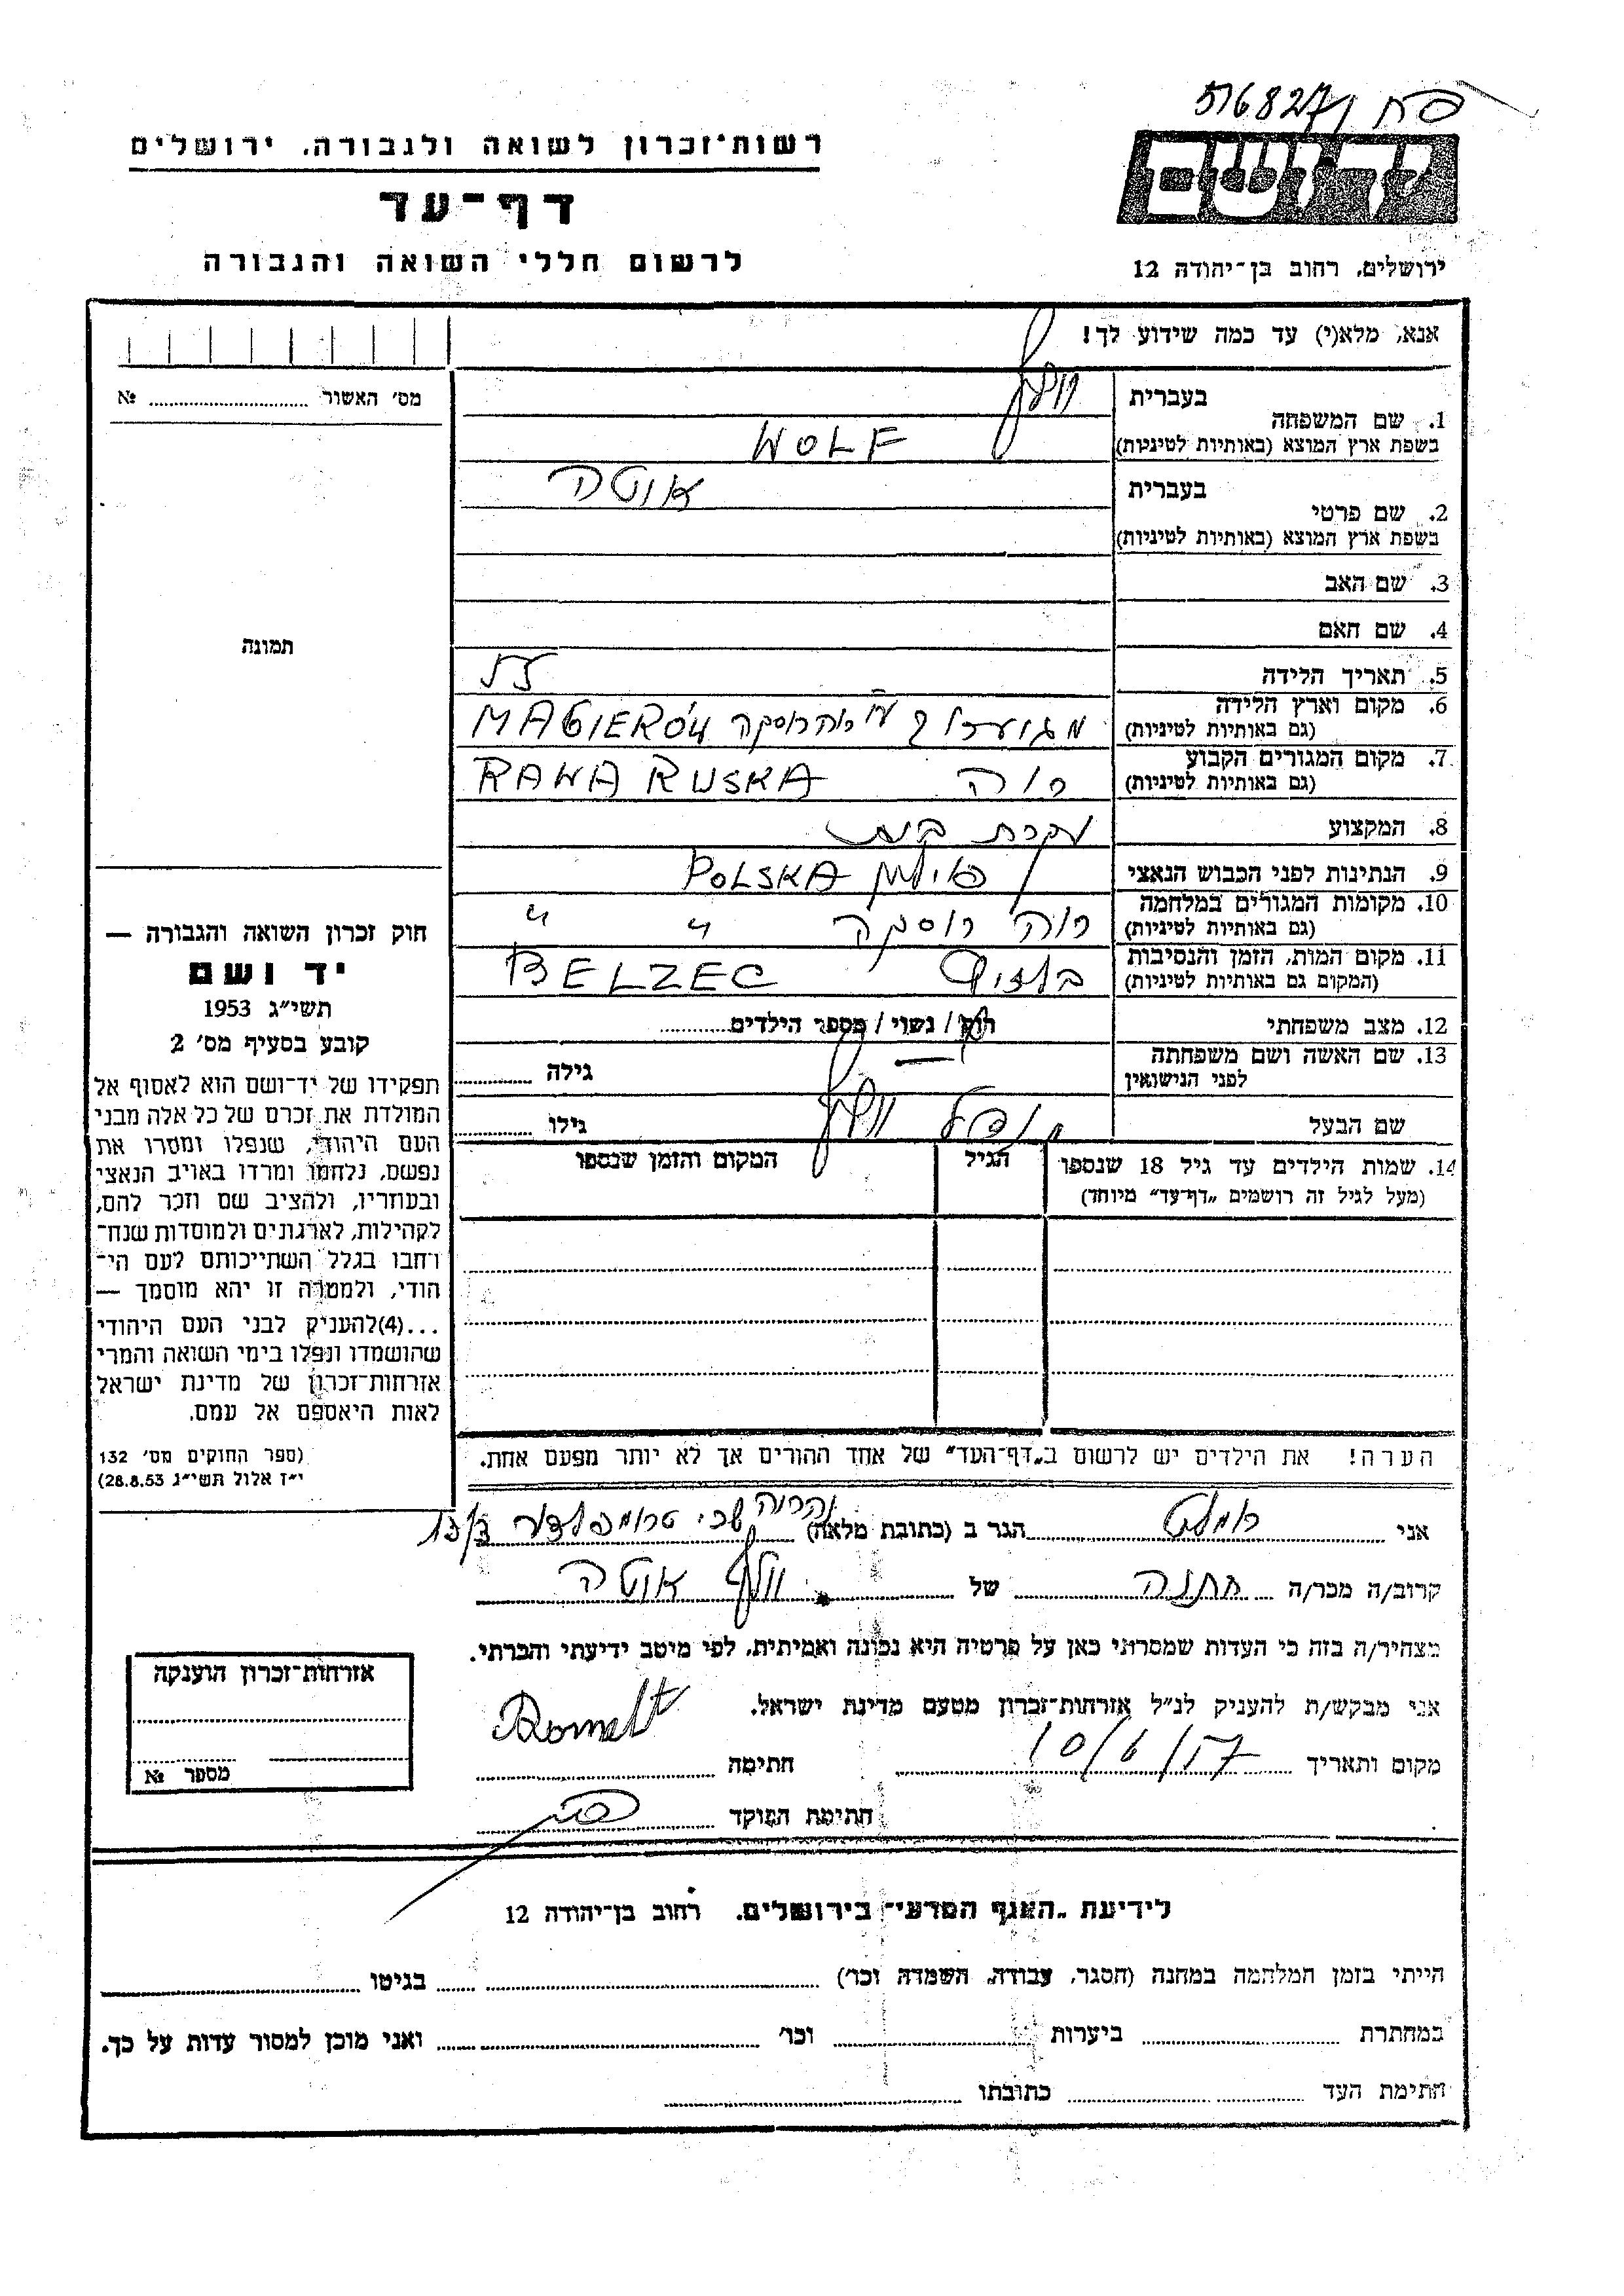 516827/ פח
רשות־זכרון לשואה ולגבורה. ירושלים
דף־עד
לרשום חללי השואה והגבורה
יד ושם
ירושלים, רחוב בן־יהודה 12
אנא, מלא(י) עד כמה שידוע לך!
מס׳ האשור №
בעברית וולף
1. שם המשפחה
בשפת ארץ המוצא (באותיות לטיניות) WOLF
בעברית אוטה
2. שם פרטי
בשפת ארץ המוצא (באותיות לטיניות)
3. שם האב
4. שם האם
תמונה
5. תאריך הלידה
6. מקום וארץ הלידה
(גם באותיות לטיניות) רוה רוסקה MAGIERÓW
7. מקום המגורים הקבוע
(גם באותיות לטיניות) רוה RAWA RUSKA
8. המקצוע עקרת בית
9. הנתינות לפני הכבוש הנאצי פולין POLSKA
10. מקומות המגורים במלחמה
(גם באותיות לטיניות) רוה רוסקה " "
11. מקום המות, הזמן והנסיבות
(המקום גם באותיות לטיניות) BELZEC
12. מצב משפחתי רווק / נשוי / מספר הילדים
13. שם האשה ושם משפחתה
לפני הנישואין גילה
שם הבעל וולף גילו
14. שמות הילדים עד גיל 18 שנספו הגיל המקום והזמן שנספו
(מעל לגיל זה רושמים „דף־עד״ מיוחד)
חוק זכרון השואה והגבורה —
יד ושם
תשי״ג 1953
קובע בסעיף מס׳ 2
תפקידו של יד־ושם הוא לאסוף אל
המולדת את זכרם של כל אלה מבני
העם היהודי, שנפלו ומסרו את
נפשם, נלחמו ומרדו באויב הנאצי
ובעוזריו, ולהציב שם וזכר להם,
לקהילות, לארגונים ולמוסדות שנח־
רחבו בגלל השתייכותם לעם הי־
הודי, ולמטרה זו יהא מוסמך —
...(4)להעניק לבני העם היהודי
שהושמדו ונפלו בימי השואה והמרי
אזרחות־זכרון של מדינת ישראל
לאות היאספם אל עמם.
(ספר החוקים מס׳ 132
י״ז אלול תשי״ג 28.8.53)
הערה! את הילדים יש לרשום ב„דף־העד״ של אחד ההורים אך לא יותר מפעם אחת.
אני רומלט הגר ב (כתובת מלאה) נהריה שכ׳ טרומפלדור
קרוב/ה מכר/ה של וולף אוטה
מצהיר/ה בזה כי העדות שמסרתי כאן על פרטיה היא נכונה ואמיתית, לפי מיטב ידיעתי והכרתי.
אני מבקש/ת להעניק לנ״ל אזרחות־זכרון מטעם מדינת ישראל.
מקום ותאריך 10/6/57 חתימה Romelt
חתימת הפוקד
אזרחות־זכרון הוענקה
מספר №
לידיעת „האגף המדעי״ בירושלים. רחוב בן־יהודה 12
הייתי בזמן המלחמה במחנה (הסגר, עבודה, השמדה וכו׳) בגיטו
במחתרת ביערות וכו׳ ואני מוכן למסור עדות על כך.
חתימת העד כתובתו